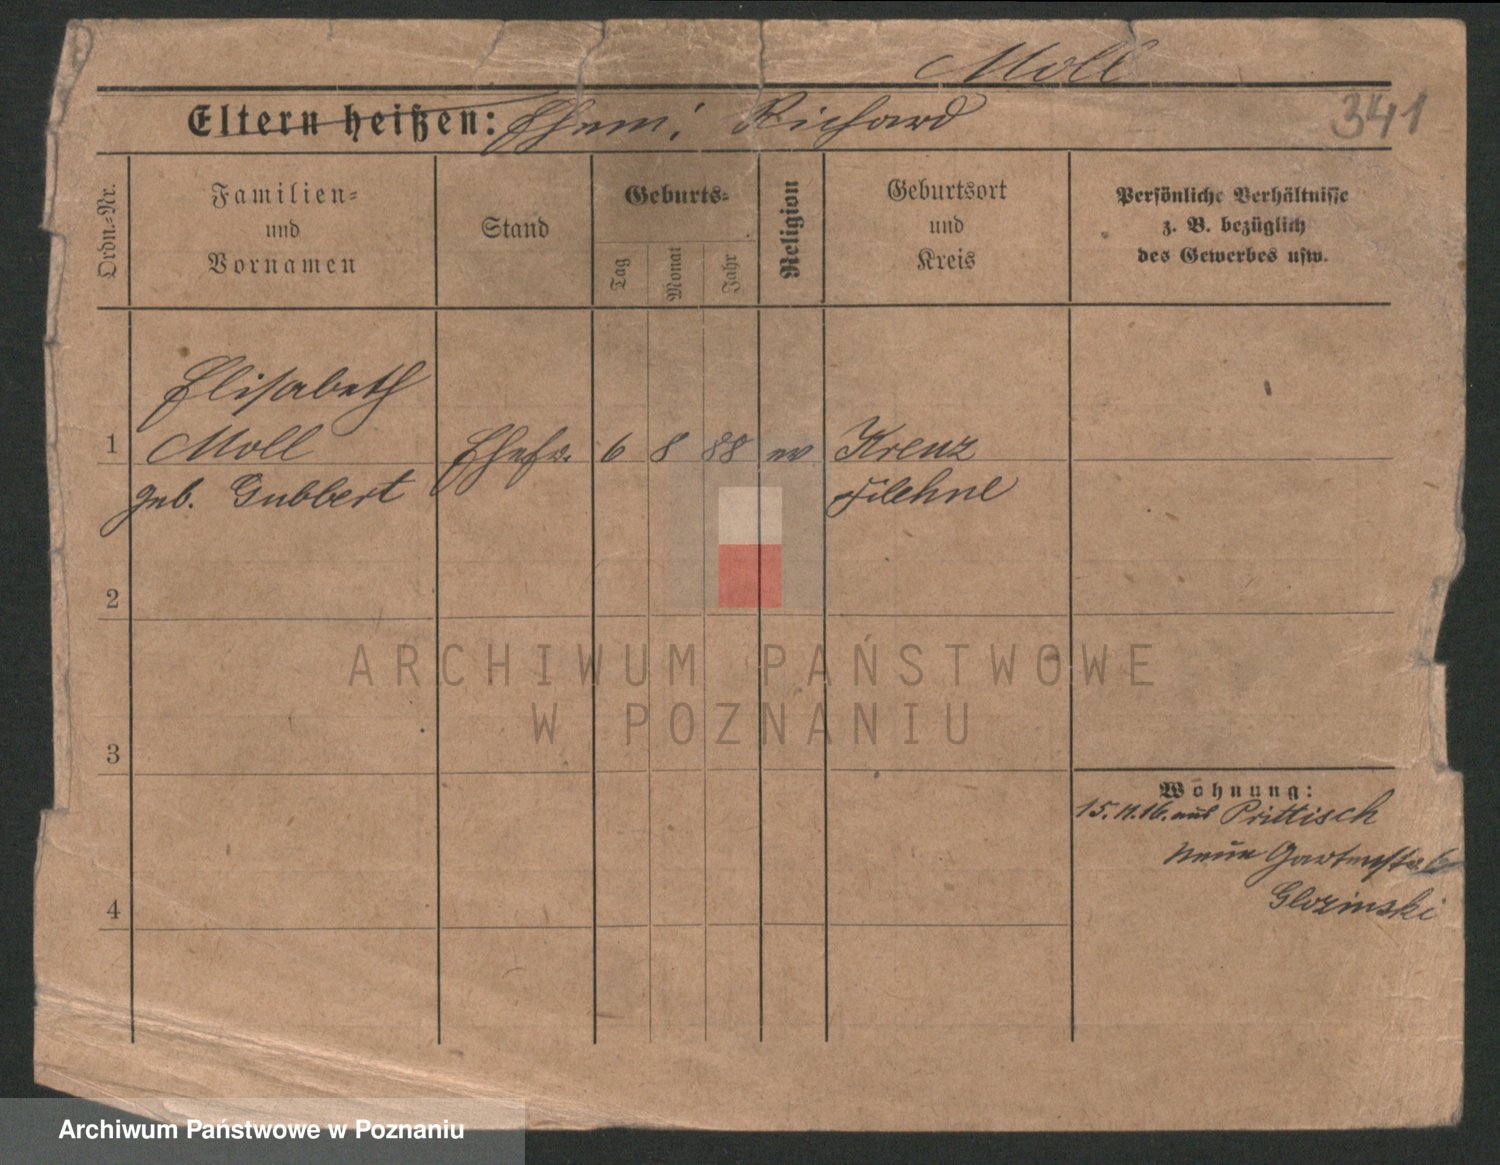 Moll
Eltern heißen: Ehem: Richard
341
Ordn.-Nr.
Familien-
und
Vornamen
Stand
Geburts-
Tag
Monat
Jahr
Religion
Geburtsort
und
Kreis
Persönliche Verhältnisse
z. B. bezüglich
des Gewerbes usw.
Elisabeth
1 Moll Ehefr. 6 8 88 ev Kreuz
geb. Gubbert Filehne
2
ARCHIWUM PAŃSTWOWE
W POZNANIU
3
Wohnung:
15.11.16. aus Prittisch
Neue Gartenstr. 6
4
Glozinski
Archiwum Państwowe w Poznaniu